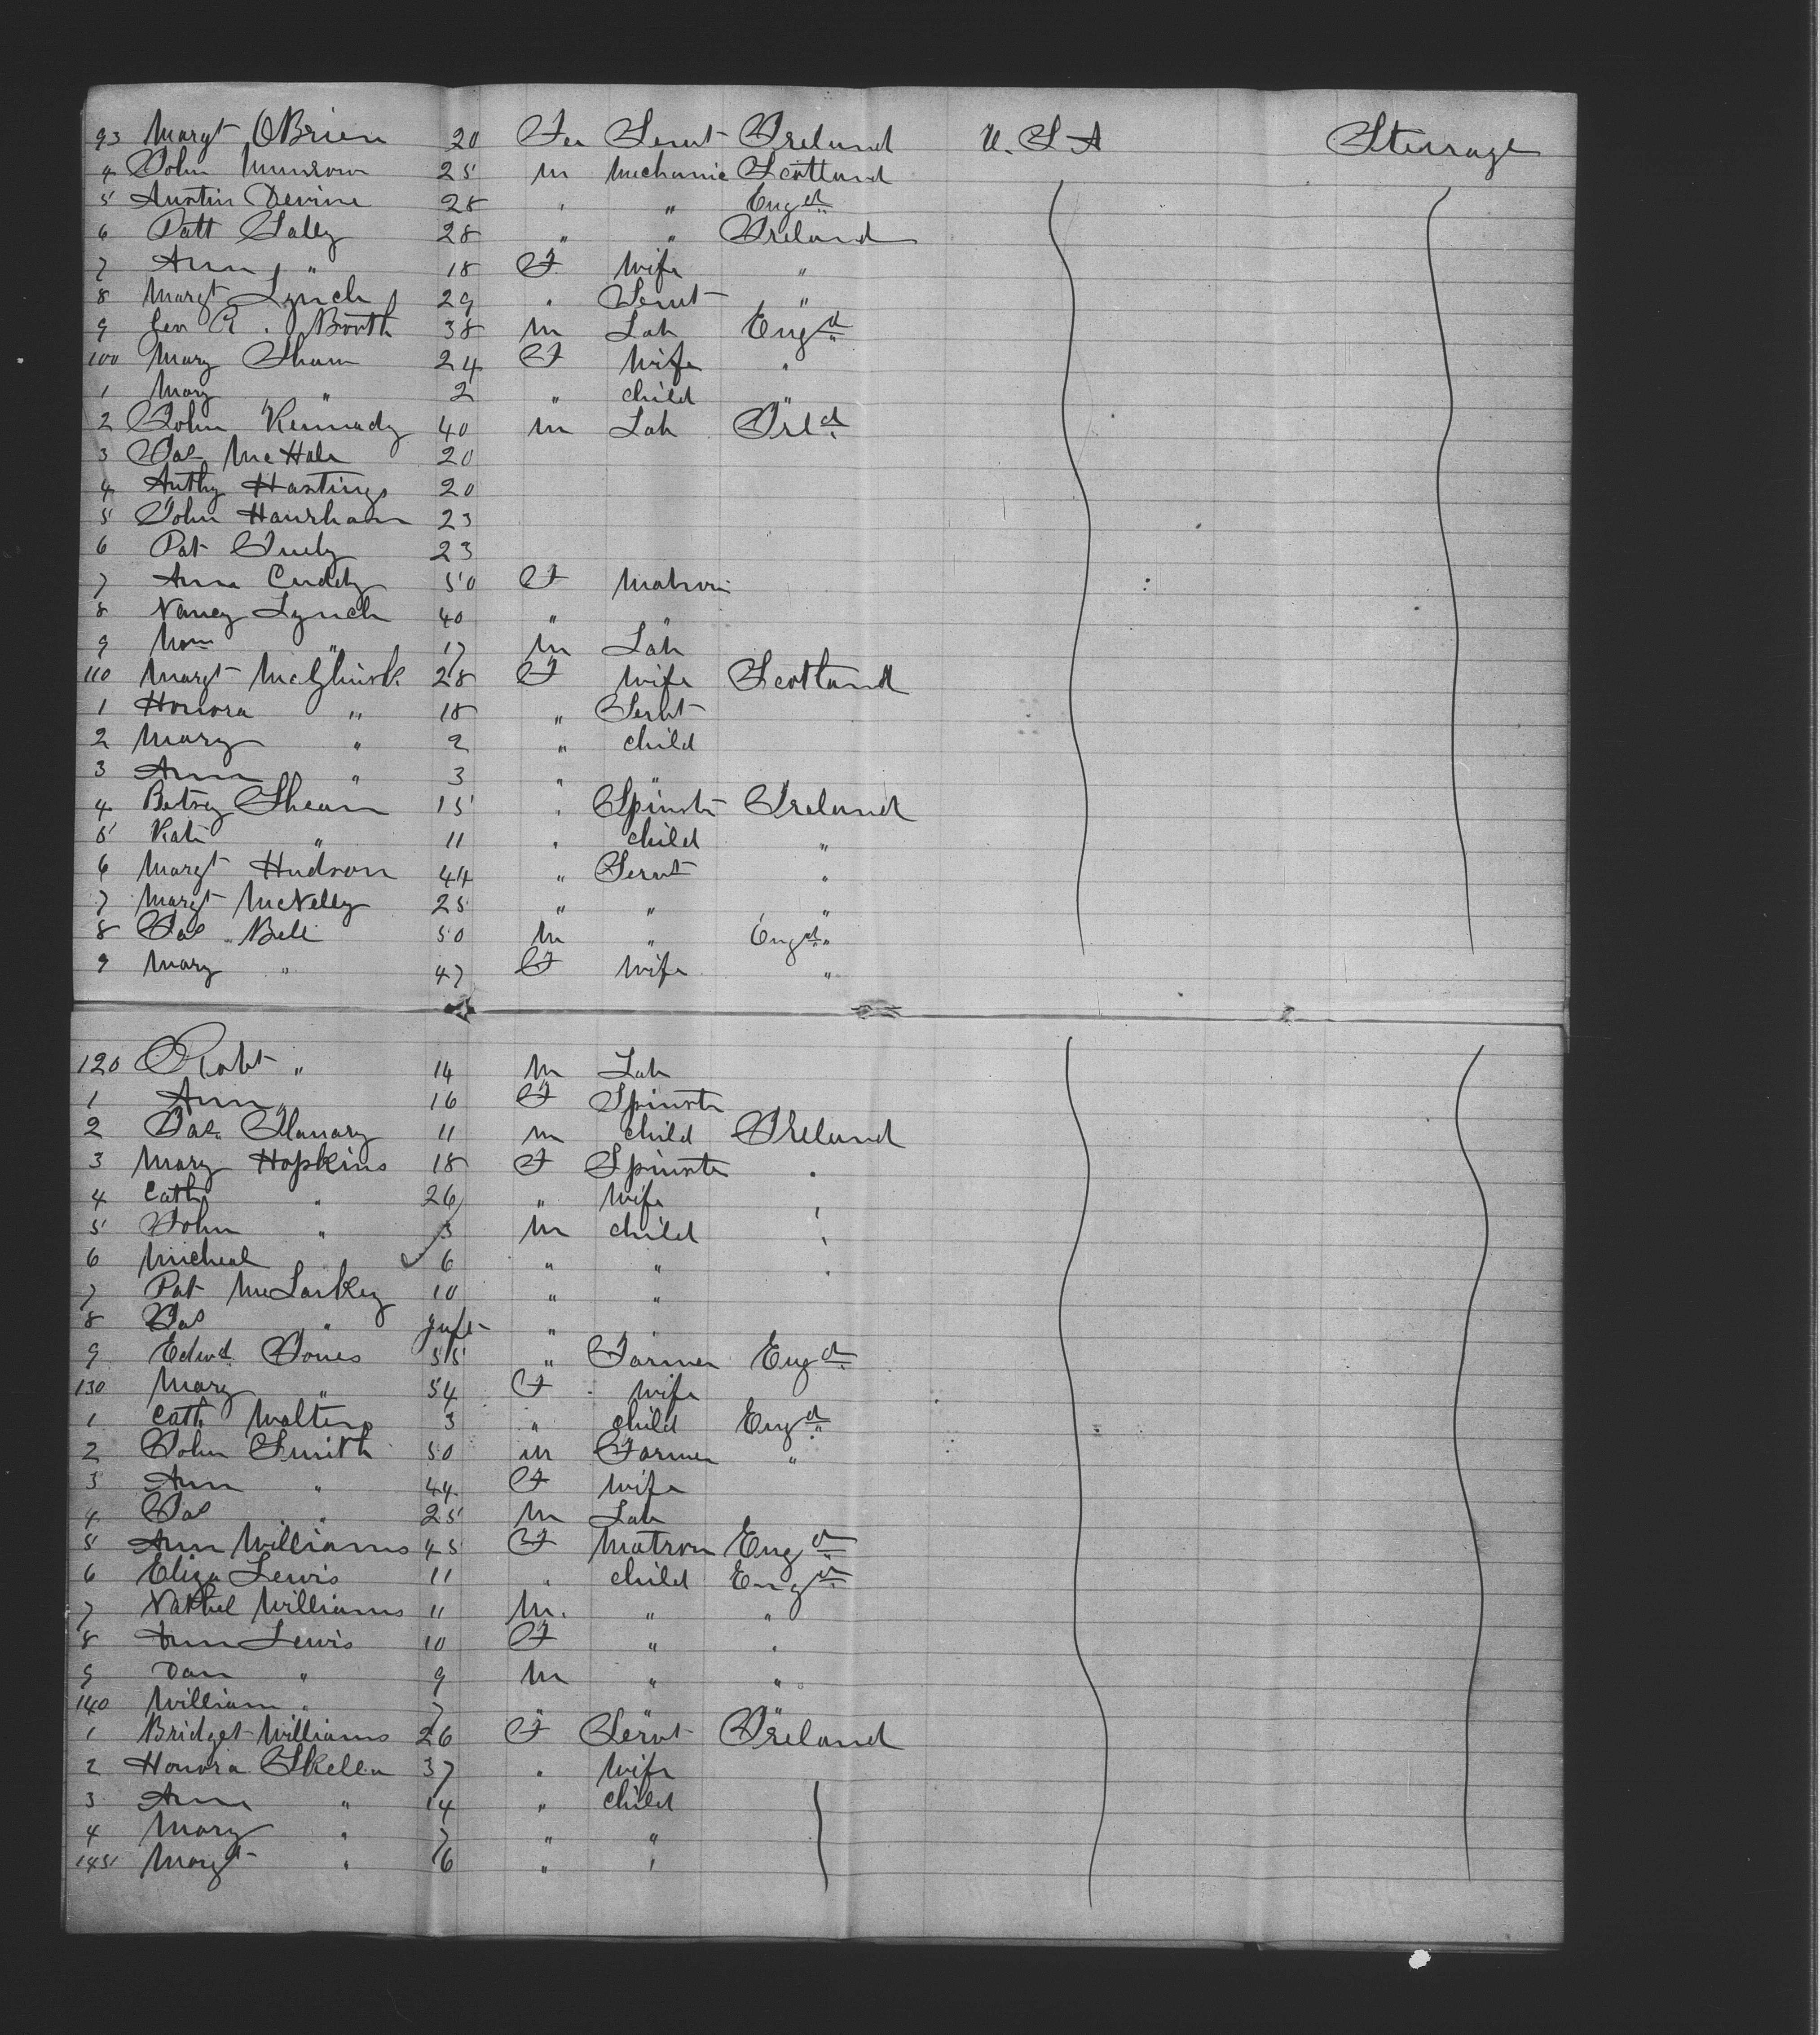 93 Margt OBrien 20 Fem Servt Ireland U.S.A Sterrage
4 John Munrow 25 M Mechanic Scotland
5 Austin Devine 28 " " Engd
6 Patt Lally 28 " " Ireland
7 Ann " 18 F Wife "
8 Margt Lynch 29 " Servt "
9 Geo R. Booth 38 M Lab Engd
100 Mary Sham 24 F Wife "
1 Mary " 2 " child "
2 John Kennady 40 M Lab Ireld
3 Jas McHale 20
4 Anthy Hastings 20
5 John Hanrahan 23
6 Pat 23
7 Anne Cuddy 50 F Matron
8 Nancy Lynch 40 " "
9 " 17 M Lab
110 Margt 28 F Wife Scotland
1 Honora " 18 " Servt
2 Mary " 2 " child
3 Ann " 3 " "
4 Betsey Shean 15 " Spinstr Ireland
5 Kate " 11 " child "
6 Margt Hudson 44 " Servt "
7 Margt McNelly 25 " " "
8 Jas Bell 50 M " Engd "
9 Mary " 47 F Wife "
120 Robt " 14 M Lab
1 Ann " 16 F Spinstr
2 Jas. 11 M child Ireland
3 Mary Hopkins 18 F Spinstr "
4 Cath " 26 " Wife "
5 John " 3 M child "
6 Micheal 6 " " "
7 Pat McLarkey 10 " "
8 Jas " Inft " "
9 Edwd Jones 55 " Farmer Engd
130 Mary " 54 F Wife
1 Cath Walters 3 " child Engd
2 John Smith 50 M Farmer "
3 Ann " 44 F Wife
4 Jas " 25 M Lab
5 Ann Williams 45 F Matron Engd
6 Eliza Lewis 11 " child Engd
7 Nathel Williams 11 M. " "
8 Ann Lewis 10 F " "
9 Dan " 9 M " "
140 William " 7 " " "
1 Bridget Williams 26 F Servt Ireland
2 Honora Skella 37 " Wife
3 Ann " 14 " child
4 Mary " 7 " "
145 Margt " 6 " "